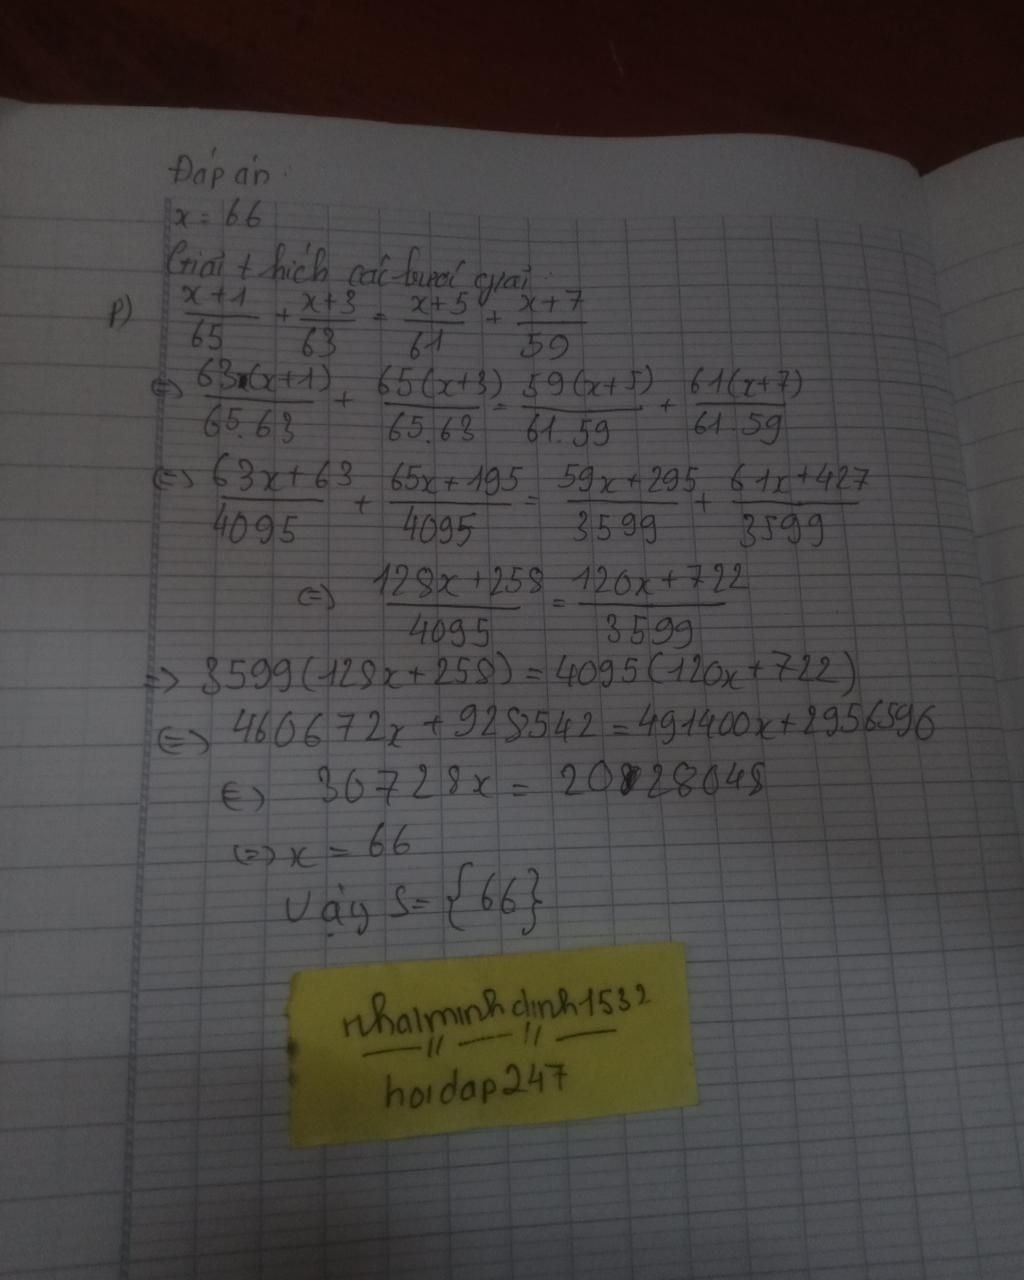 Đáp án:
x = 66
Giải thích các bước giải:
p) x+1/65 + x+3/63 = x+5/61 + x+7/59
<=> 63(x+1)/65.63 + 65(x+3)/65.63 = 59(x+5)/61.59 + 61(x+7)/61.59
<=> 63x+63/4095 + 65x+195/4095 = 59x+295/3599 + 61x+427/3599
<=> 128x+258/4095 = 120x+722/3599
=> 3599(128x+258) = 4095(120x+722)
<=> 460672x + 928542 = 491400x + 2956596
<=> 30728x = 2028048
<=> x = 66
Vậy S = {66}
nhalminhdinh1532
hoidap247